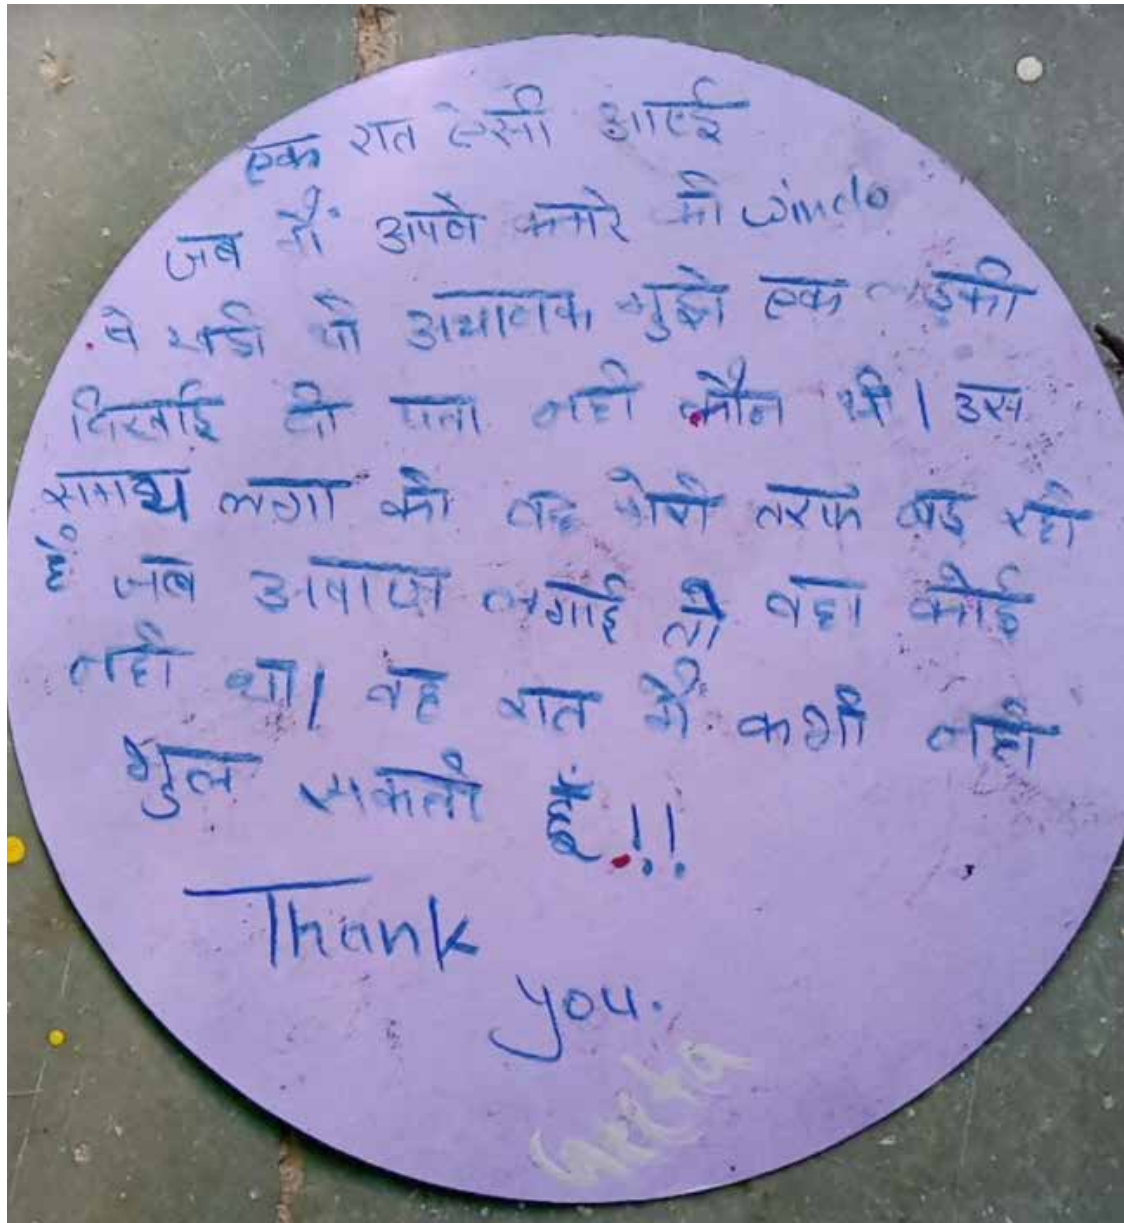 एक रात ऐसी आएई
जब मैं अपने कमरे की windo
पे खडी थी अचानक मुझे एक लड़की
दिखाई दी पता नही कौन थी। उस
समय लगा की वह मेरी तरफ बड रही
हैं जब आवाज लगाई तो वहा कोई
नही था। वह रात मैं कभी नही
भुल सकती हूँ.!!
Thank
you.